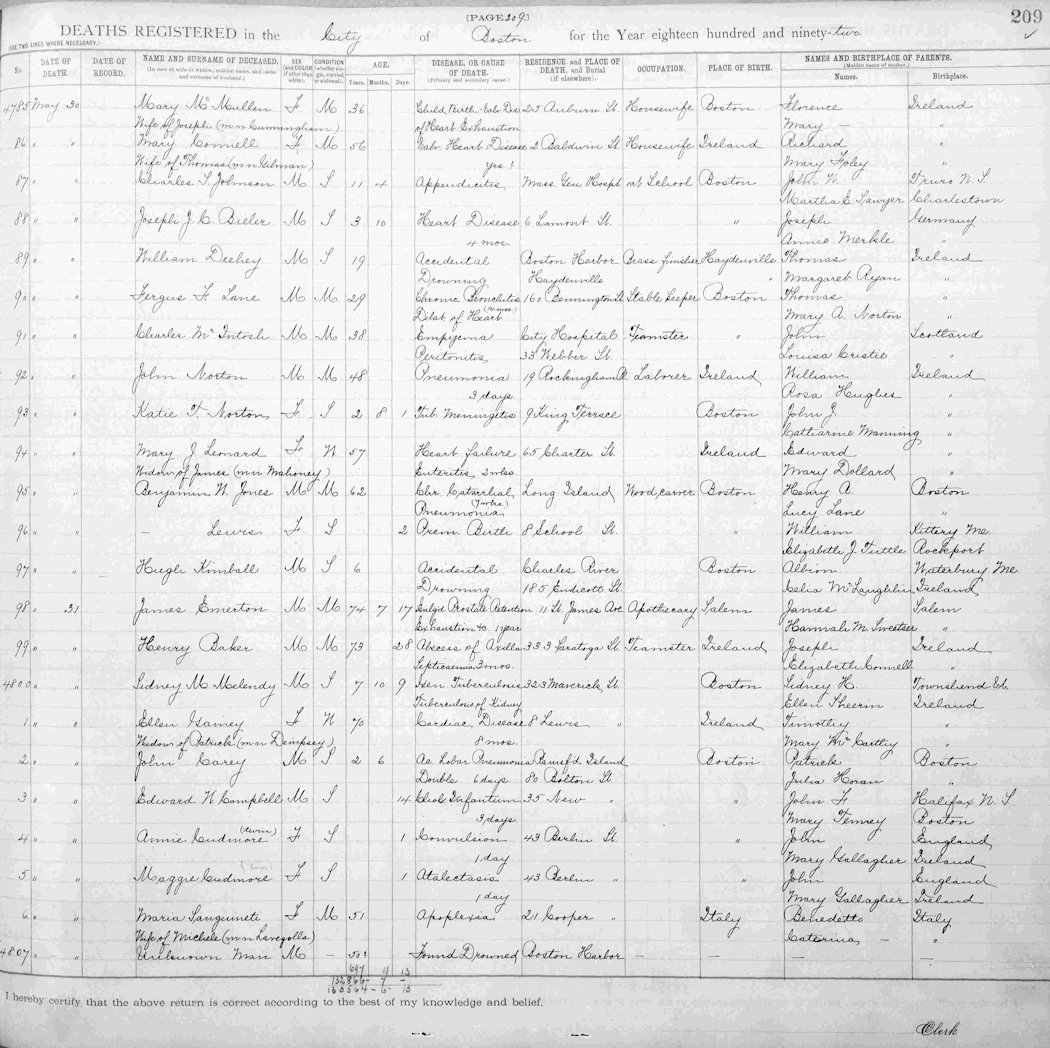 [PAGE 209.]
209
DEATHS REGISTERED in the City of Boston for the Year eighteen hundred and ninety-two.
(USE TWO LINES WHERE NECESSARY.)
No. DATE OF DEATH. DATE OF RECORD. NAME AND SURNAME OF DECEASED. SEX CONDITION AGE. DISEASE, OR CAUSE OF DEATH. RESIDENCE, and PLACE OF DEATH, and Burial (if elsewhere). OCCUPATION. PLACE OF BIRTH. NAMES AND BIRTHPLACE OF PARENTS.
(In case of wife or widow, maiden name, and name and surname of husband.) (Primary and secondary cause.) (Maiden name of mother.)
Years. Months. Days. Names. Birthplace.
4785 May 30 Mary McMullen F M 36 Child Birth - 25 Auburn St. Housewife Boston Florence Ireland
Wife of Joseph (m n Cunningham) of Heart Exhaustion Mary — "
86 " " Mary Connell F M 56 Valv. Heart Disease 2 Baldwin St. Housewife Ireland Richard "
Wife of Thomas (m n Gilman) yrs. ? Mary Foley "
87 " " Charles S. Johnson M S 11 4 Appendicitis Mass. Gen. Hospt at School Boston John W. Truro N. S.
Martha E. Sawyer Charlestown
88 " " Joseph J. C. Bieler M S 3 10 Heart Disease 6 Lamont St. " Joseph Germany
4 mos. Annie Merkle "
89 " " William Deehey M S 19 Accidental Boston Harbor Brass finisher Haydenville Thomas Ireland
Drowning Haydenville " Margaret Ryan "
90 " " Fergus F. Lane M M 29 Chronic Bronchitis 160 Bennington St Stable keeper Boston Thomas "
Dilat. of Heart Mary A. Norton "
91 " " Charles McIntosh M M 38 Empyema City Hospital Teamster " John Scotland
Peritonitis 33 Webber St. Louisa Cristie "
92 " " John Norton M M 48 Pneumonia 19 Rockingham Pl. Laborer Ireland William Ireland
3 days Rosa Hughes "
93 " " Katie T. Norton F S 2 8 1 Tub. Meningitis 9 King Terrace Boston John J. "
Catharine Manning "
94 " " Mary J. Leonard F W 57 Heart failure 65 Charter St. Ireland Edward "
Widow of James (m n Mahoney) Enteritis, 2 wks Mary Dollard "
95 " " Benjamin W. Jones M M 62 Chr. Catarrhal Long Island Wood carver Boston Henry A. Boston
Pneumonia Lucy Lane "
96 " " — Lewis F S 2 Prem. Birth 8 School St. " William Kittery Me.
Elizabeth J. Tuttle Rockport
97 " " Hugh Kimball M S 6 Accidental Charles River Boston Albion Waterbury Me.
Drowning 185 Endicott St. Celia McLaughlin Ireland
98 " 31 James Emerton M M 74 7 17 Enlgd Prostate Retention 11 St. James Ave. Apothecary Salem James Salem
Exhaustion &c. 1 year Hannah M. Sweetser "
99 " " Henry Baker M M 73 28 Abcess of Axilla 333 Saratoga St. Teamster Ireland Joseph Ireland
Septicaemia 3 mos. Elizabeth Connell "
4800 " " Sidney M. Melendy M S 7 10 9 Gen. Tuberculosis 323 Maverick St. Boston Sidney H. Townshend Vt.
Tuberculosis of Kidney Ellen Sheerin Ireland
1 " " Ellen Gamey F W 70 Cardiac Disease 8 Lewis " Ireland Timothy "
Widow of Patrick (m n Dempsey) 8 mos. Mary McCarthy "
2 " " John Carey M S 2 6 Ac. Lobar Pneumonia Rainsf'd Island Boston Patrick Boston
Double 6 days 80 Bolton St. Julia Horan "
3 " " Edward W. Campbell M S 14 Chol. Infantum 35 New " " John F. Halifax N. S
3 days Mary Tenney Boston
4 " " Annie Cudmore (twin) F S 1 Convulsion 43 Berlin St. " John England
1 day Mary Gallagher Ireland
5 " " Maggie Cudmore (twin) F S 1 Atalectasis 43 Berlin " " John England
1 day Mary Gallagher Ireland
6 " " Maria Sanguineti F M 51 Apoplexia 21 Cooper " Italy Benedetto Italy
Wife of Michele (m n Lavezolla) Caterina — "
4807 " " Unknown Man M — 50? Found Drowned Boston Harbor — — — —
697 11 13
132,866 - 7 -
133564 - 6 - 13
I hereby certify that the above return is correct according to the best of my knowledge and belief.
Clerk